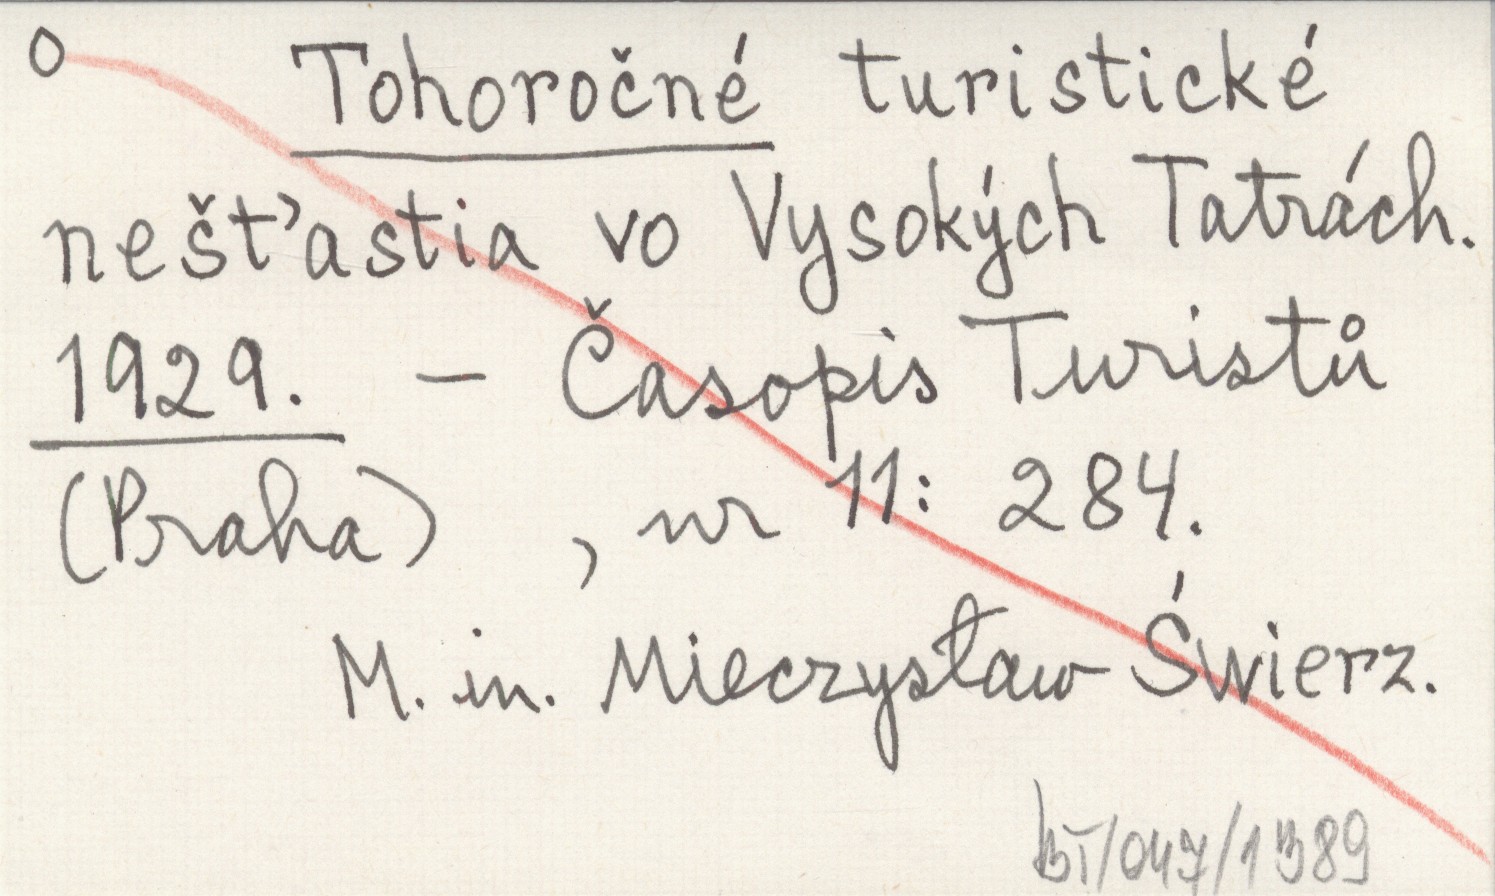 O Tohoročné turistické
nešťastia vo Vysokých Tatrách.
1929. – Časopis Turistů
(Praha) , nr 11: 284.
M. in. Mieczysław Świerz.
BT/047/1389